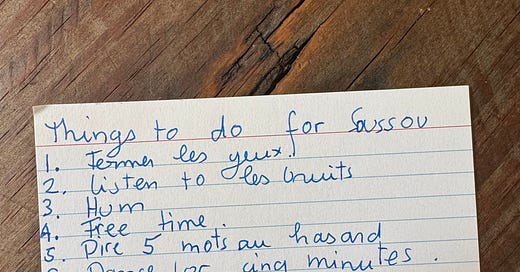 Things to do for Sassou
1. Fermer les yeux.
2. listen to les bruits
3. Hum
4. Free time.
5. Dire 5 mots au hasard
Dance for cinq minutes.